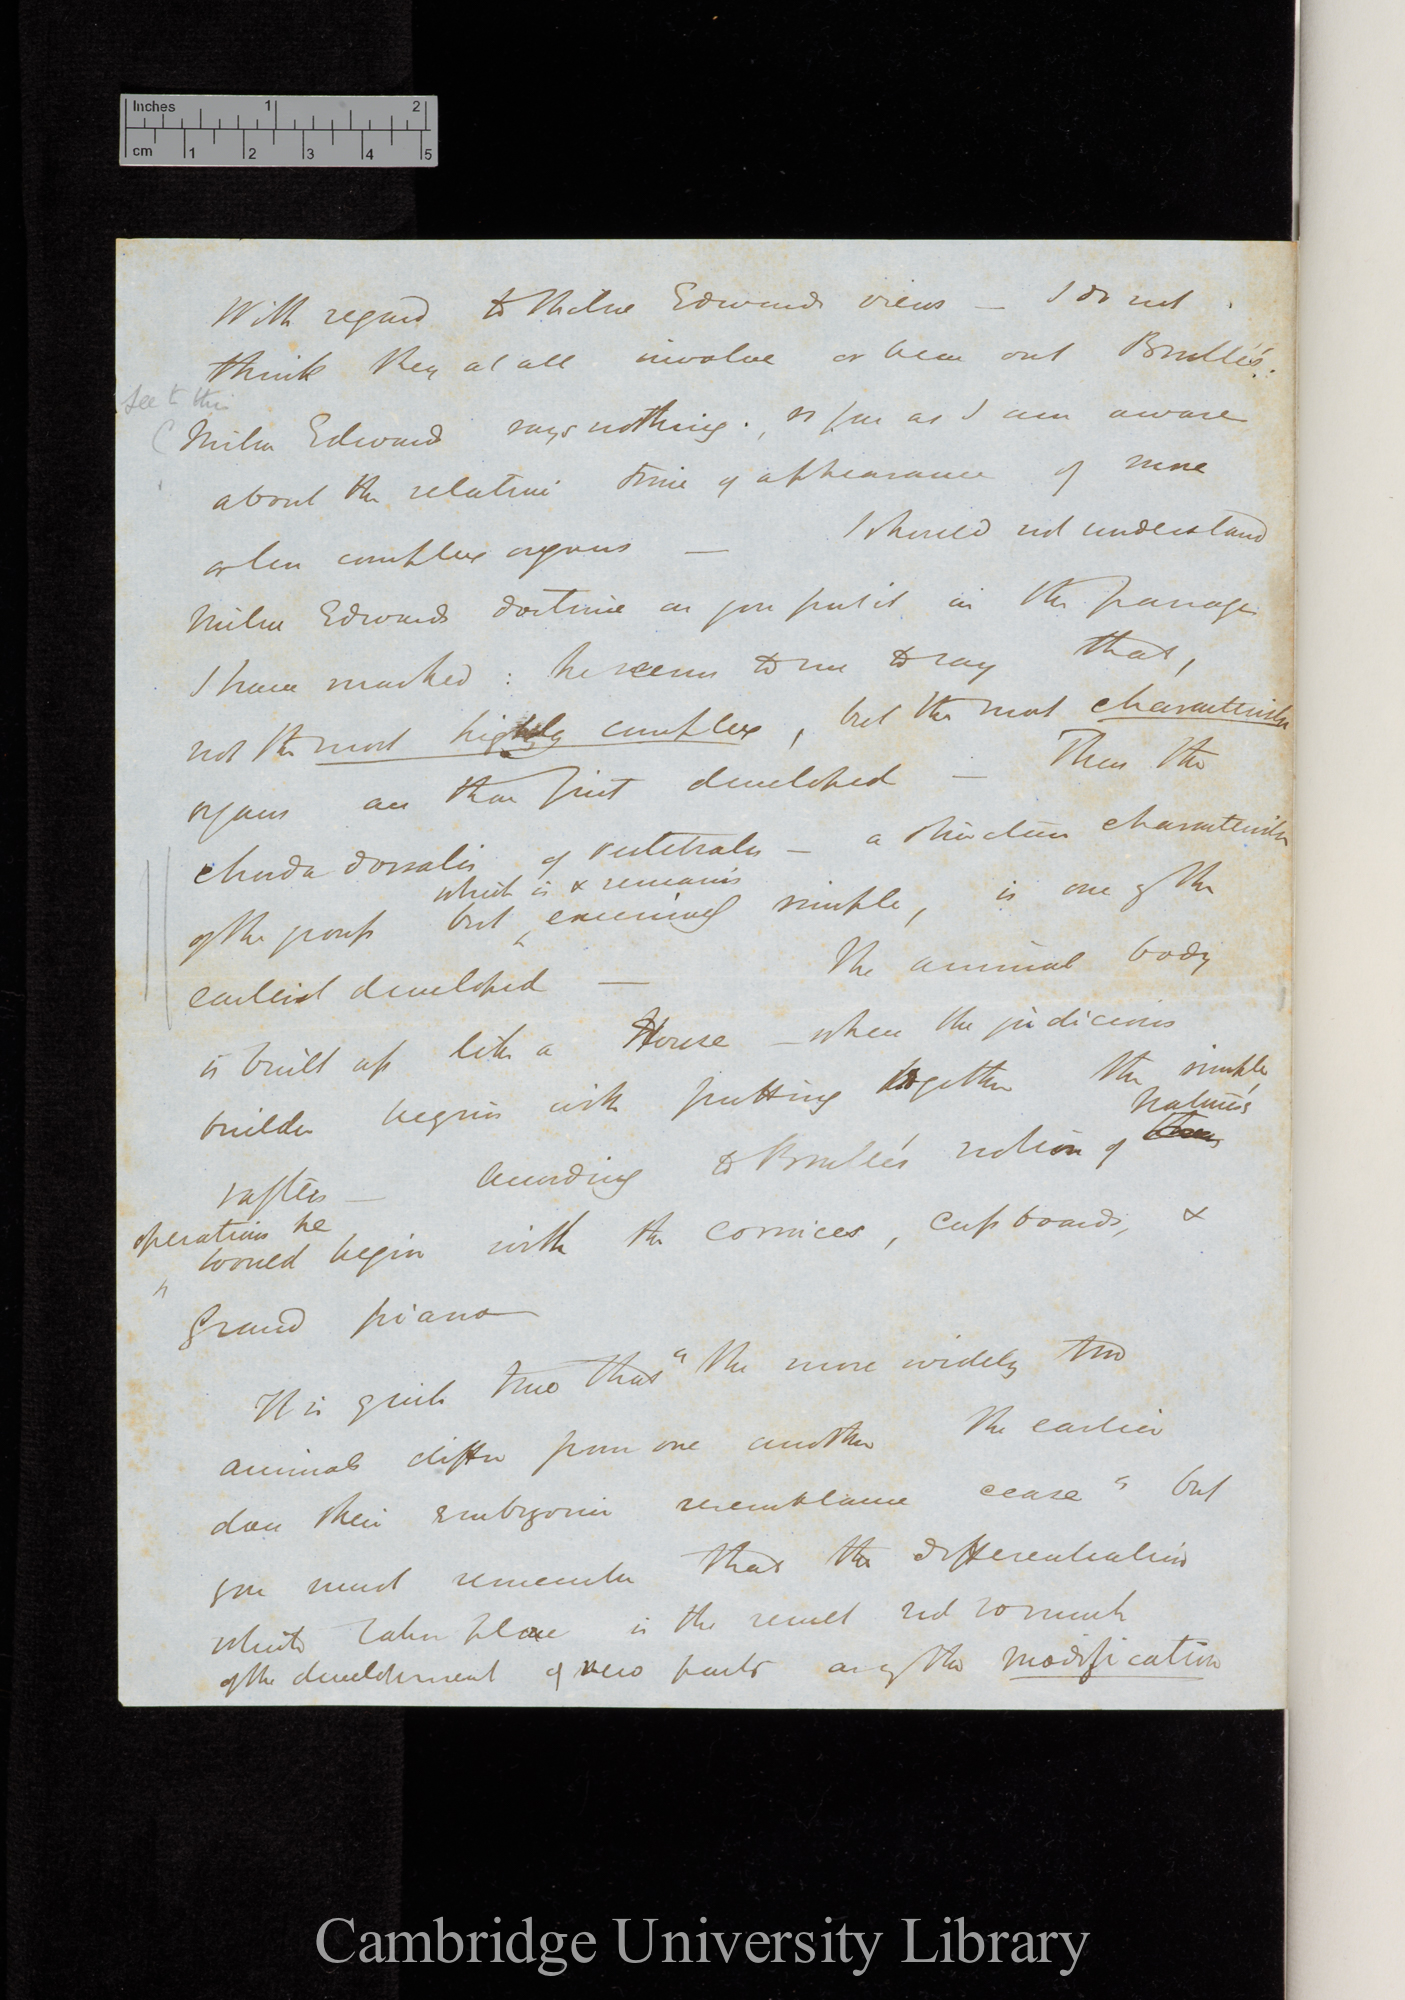 Inches 1 2
cm 1 2 3 4 5
With regard to Milne Edwards views — I do not
think they at all involve or bear out Brullé's.
see to this
(Milne Edwards says nothing, so far as I am aware
about the relative time of appearance of more
or less complex organs — I should not understand
Milne Edwards doctrine as you put it in the passage
I have marked: he seems to me to say that,
not the most highly complex, but the most characteristic
organs are the first developed — Thus the
chorda dorsalis of vertebrates — a structure characteristic
which is & remains
of the group but ‸ exceeding simple, is one of the
earliest developed — The animal body
is built up like a House — where the judicious
builder begins with putting together the simple
nature's
rafters — According to Brullé's notion of
operations he
‸ would begin with the cornices, cupboards, &
grand piano
It is quite true that "the more widely two
animals differ from one another the earlier
does their embryonic resemblance cease" but
you must remember that the differentiation
which takes place is the result not so much
of the development of new parts as of the modification
Cambridge University Library